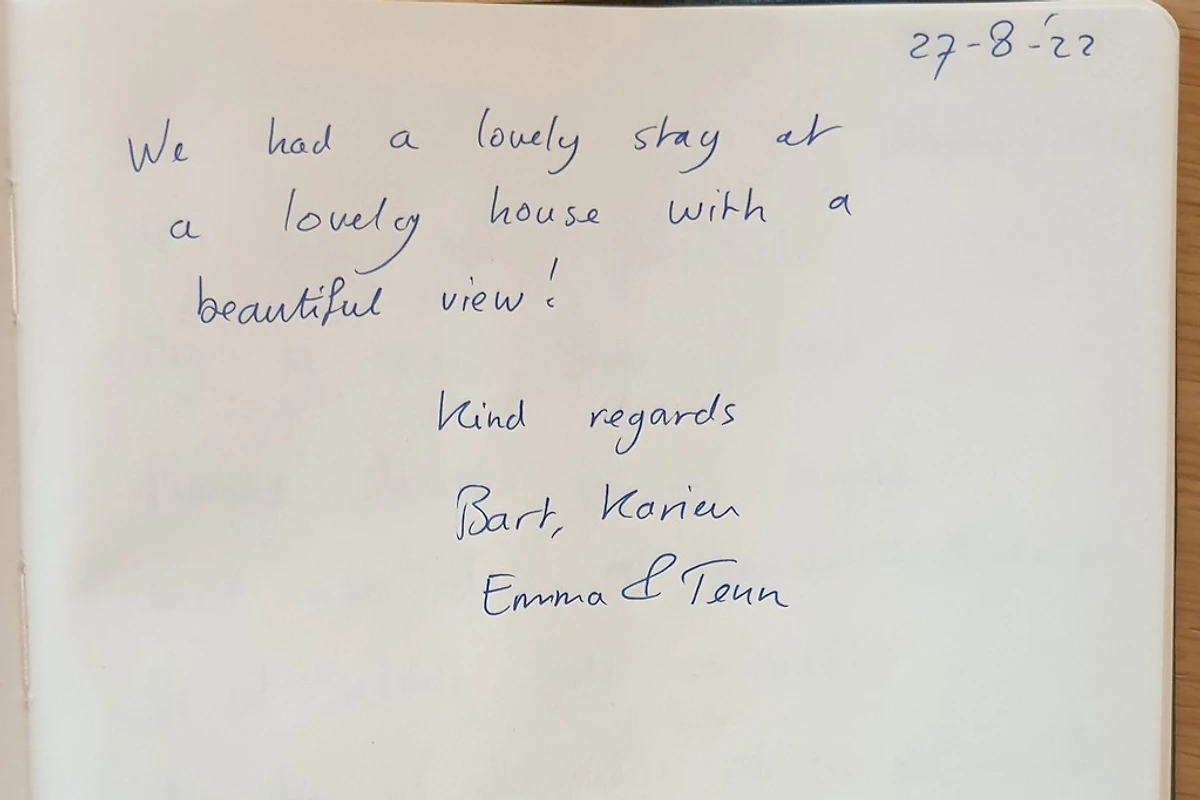 27-8-'22
We had a lovely stay at
a lovely house with a
beautiful view!
Kind regards
Bart, Karien
Emma & Teun